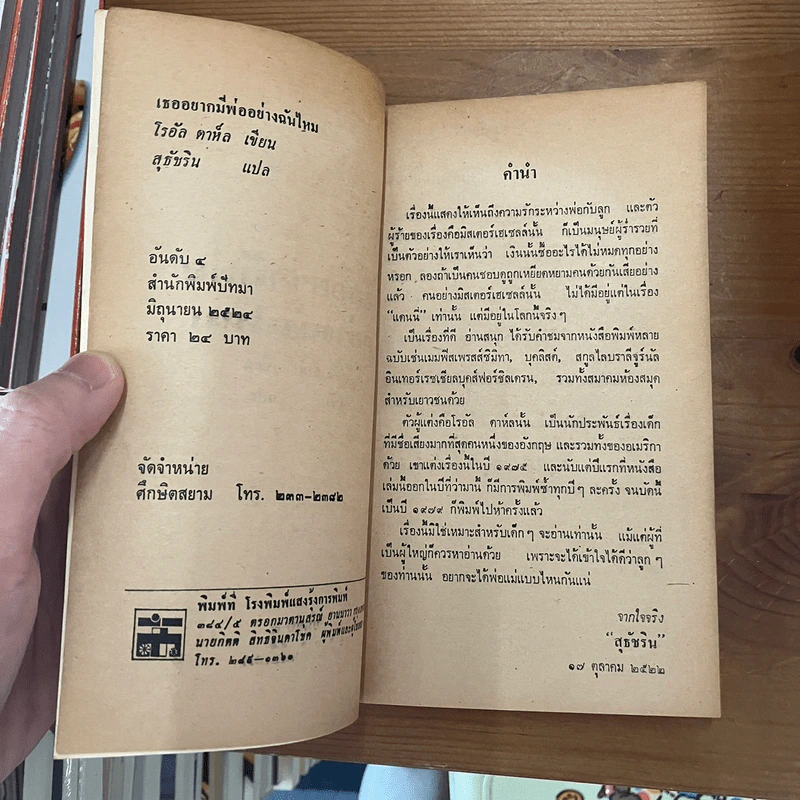 เธออยากมีพ่ออย่างฉันไหม
โรอัล ดาห์ล เขียน
สุธัชริน แปล
อันดับ ๔
สำนักพิมพ์ปัทมา
มิถุนายน ๒๕๒๔
ราคา ๒๔ บาท
จัดจำหน่าย
ศึกษิตสยาม โทร. ๒๓๓-๒๓๘๒
พิมพ์ที่ โรงพิมพ์แสงรุ้งการพิมพ์
๓๘๔/๕ ตรอกมาตานุสรณ์ ยานนาวา
นายกิตติ สิทธิจินดาโชค ผู้พิมพ์และผู้โฆษณา
โทร. ๒๘๔-๑๓๖๐
คำนำ
เรื่องนี้แสดงให้เห็นถึงความรักระหว่างพ่อกับลูก และตัว
ผู้ร้ายของเรื่องคือมิสเตอร์เฮเซลล์นั้น ก็เป็นมนุษย์ผู้ร่ำรวยที่
เป็นตัวอย่างให้เราเห็นว่า เงินนั้นซื้ออะไรได้ไม่หมดทุกอย่าง
หรอก ลองถ้าเป็นคนชอบดูถูกเหยียดหยามคนด้วยกันเสียอย่าง
แล้ว คนอย่างมิสเตอร์เฮเซลล์นั้น ไม่ได้มีอยู่แต่ในเรื่อง
"แดนนี่" เท่านั้น แต่มีอยู่ในโลกนี้จริงๆ
เป็นเรื่องที่ดี อ่านสนุก ได้รับคำชมจากหนังสือพิมพ์หลาย
ฉบับเช่นเมมฟิสเพรสส์ซิมิทา, บุคลิสต์, สกูลไลบรารีจูร์นัล
อินเทอร์เรซเชียลบุคส์ฟอร์ชิลเดรน, รวมทั้งสมาคมห้องสมุด
สำหรับเยาวชนด้วย
ตัวผู้แต่งคือโรอัล ดาห์ลนั้น เป็นนักประพันธ์เรื่องเด็ก
ที่มีชื่อเสียงมากที่สุดคนหนึ่งของอังกฤษ และรวมทั้งของอเมริกา
ด้วย เขาแต่งเรื่องนี้ในปี ๑๙๗๕ และนับแต่ปีแรกที่หนังสือ
เล่มนี้ออกในปีที่ว่ามานี้ ก็มีการพิมพ์ซ้ำทุกปีๆ ละครั้ง จนบัดนี้
เป็นปี ๑๙๗๙ ก็พิมพ์ไปห้าครั้งแล้ว
เรื่องนี้มิใช่เหมาะสำหรับเด็กๆ จะอ่านเท่านั้น แม้แต่ผู้ที่
เป็นผู้ใหญ่ก็ควรหาอ่านด้วย เพราะจะได้เข้าใจได้ดีว่าลูกๆ
ของท่านนั้น อยากจะได้พ่อแม่แบบไหนกันแน่
จากใจจริง
"สุธัชริน"
๑๗ ตุลาคม ๒๕๒๒